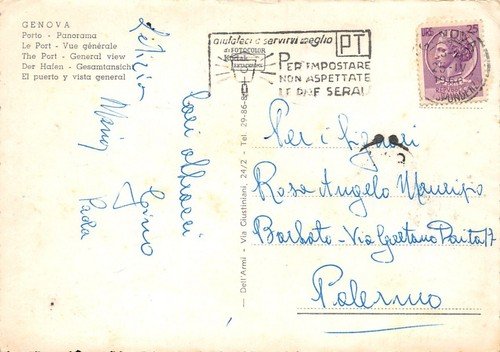 GENOVA
Porto - Panorama
Le Port - Vue générale
The Port - General view
Der Hafen - Gesamtansicht
El puerto y vista general
Letizia
Cari abbracci
Gino
Paola
Dell'Armi - Via Giustiniani, 24/2 - Tel. 29-86-8
aiutateci a servirvi meglio
PT
PER IMPOSTARE
NON ASPETTATE
LE ORE SERALI
FOTOCOLOR
Kodak
LIRE 25
Per i Signori
Rosa Angelo
Barbato - Via Gaetano Daita 7
Palermo